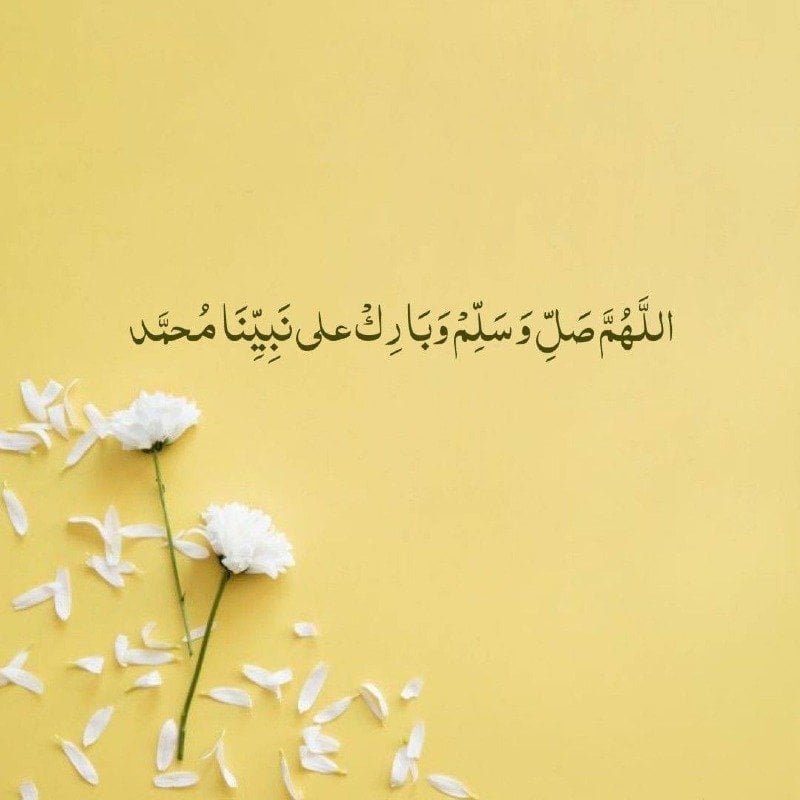 اللَّهُمَّ صَلِّ وَسَلِّمْ وَبَارِكْ على نَبِيِّنَا مُحمَّد